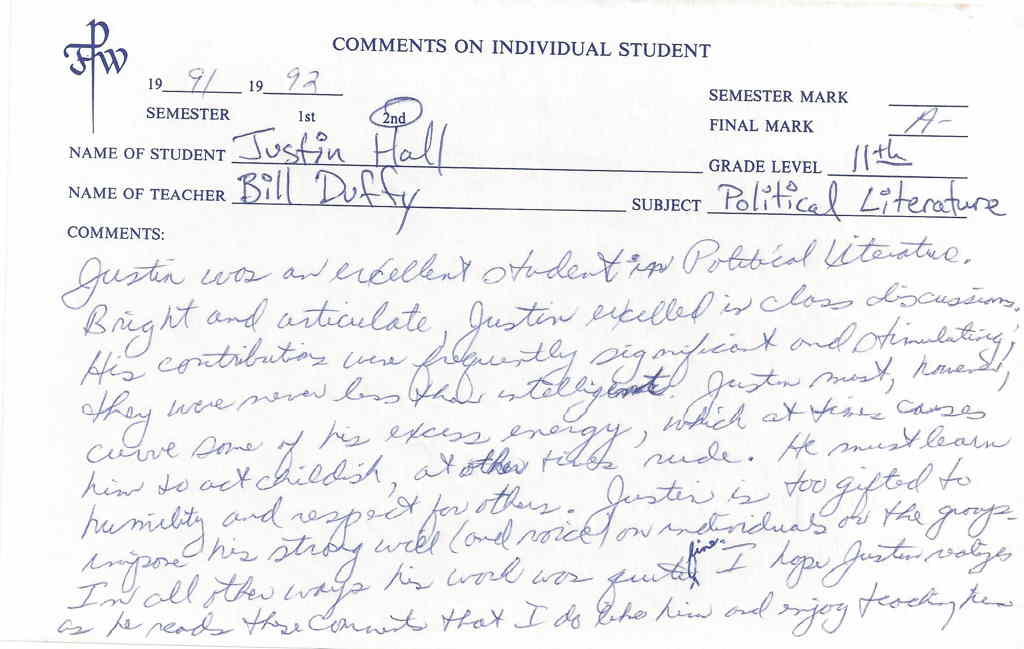 FPW
COMMENTS ON INDIVIDUAL STUDENT
19 91 19 92
SEMESTER MARK
SEMESTER 1st 2nd
FINAL MARK A-
NAME OF STUDENT Justin Hall
GRADE LEVEL 11th
NAME OF TEACHER Bill Duffy SUBJECT Political Literature
COMMENTS:
Justin was an excellent student in Political Literature.
Bright and articulate, Justin excelled in class discussions.
His contributions were frequently significant and stimulating;
they were never less than intelligent. Justin must, however,
curve some of his excess energy, which at times causes
him to act childish, at other times rude. He must learn
humility and respect for others. Justin is too gifted to
impose his strong will (and voice) on individuals or the group.
In all other ways his work was quite fine. I hope Justin realizes
as he reads these comments that I do like him and enjoy teaching him